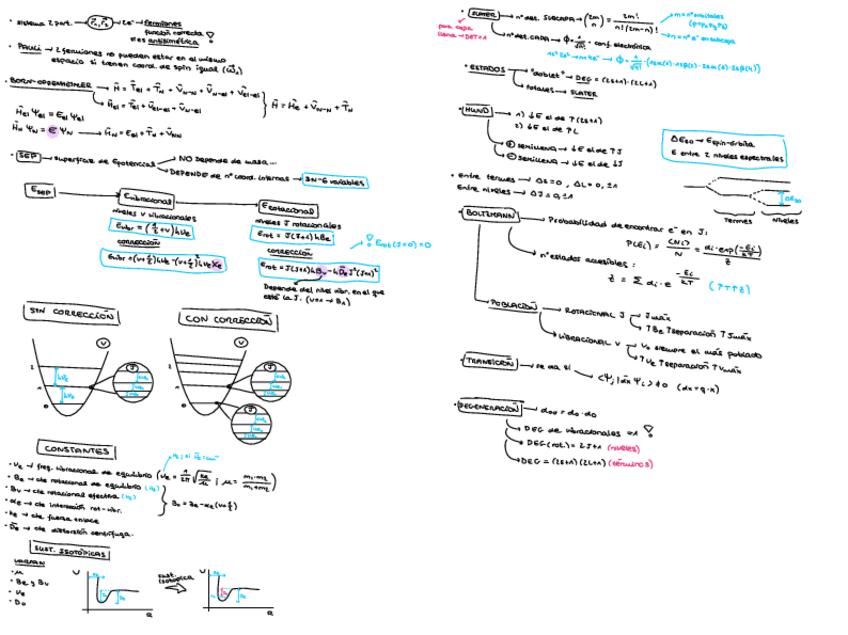 • SISTEMA 2 part. → (r⃗₁, r⃗₂) → 2e⁻ → fermiones
función correcta
si es antisimétrica
• PAULI → 2 fermiones no pueden estar en el mismo
espacio si tienen coord. de spin igual (ω₁)
• BORN-OPPENHEIMER → Ĥ = T̂el + T̂N + V̂N-N + V̂N-el + V̂el-el
Ĥel = T̂el + V̂el-N + V̂el-el
Ĥ = Ĥe + V̂N-N + T̂N
Ĥel Ψel = Eel Ψel
ĤN ΨN = E ΨN → ĤN = Eel + T̂N + V̂NN
• SEP → superficie de Epotencial → NO Depende de masa...
DEPENDE de nº coord. internas → 3N-6 variables
ESEP → Evibracional
Erotacional
niveles v vibracionales
Evibr = (1/2 + v) hνe
CORRECCIÓN
Evibr = (v + 1/2) hνe - (v + 1/2)² hνe xe
niveles J rotacionales
Erot = J(J+1) hBe
Erot (J=0) = 0
CORRECCIÓN
Erot = J(J+1) hBv - hDe J²(J+1)²
Depende del nivel vibr. en el que
está la J. (v=1 → B1)
SIN CORRECCIÓN
CON CORRECCIÓN
V
J
2
1
0
V
J
J
2
1
0
CONSTANTES
• νe → freq. vibracional de equilibrio (νe = 1/2π √(ke/μ) ; μ = m1·m2/m1+m2)
• Be → cte rotacional de equilibrio
• Bv → cte rotacional efectiva
Bv = Be - αe (v + 1/2)
• αe → cte interacción rot-vibr.
• ke → cte fuerza enlace
• De → cte distorsión centrífuga.
SUST. ISOTÓPICAS
VARÍAN
• μ
• Be y Bv
• νe
• D0
U
R
sust.
isotópica
U
R
• SLATER → nº det. SUBCAPA → (2m n) = 2m! / n!(2m-n)!
m = nº orbitales
n = nº e⁻ en subcapa
para capa
llena → DET = 1
nº det. CAPA → Φ = 1/√n! · conf. electrónica
• ESTADOS → "doblet" → DEG = (2S+1)·(2L+1)
totales → SLATER
• HUND → 1) ↓E el de ↑(2S+1)
2) ↓E el de ↑L
> semillena → ↓E el de ↑J
< semillena → ↓E el de ↓J
ΔESO → Espin-órbita
E entre 2 niveles espectrales
• Entre termes → ΔS = 0, ΔL = 0, ±1
Entre niveles → ΔJ = 0, ±1
ΔESO
Termes
Niveles
• BOLTZMANN → Probabilidad de encontrar e⁻ en J:
P(Ei) = ⟨Ni⟩/N = di·exp(-Ei/kT)/Z
nº estados accesibles:
Z = Σ di · e^(-Ei/kT) (↑T↑Z)
POBLACIÓN → ROTACIONAL J → Jmáx
↑Be ↑separación ↑Jmáx
VIBRACIONAL v → v0 siempre el más poblado
↑νe ↑separación ↑vmáx
• TRANSICIÓN → se da si
⟨Ψj|dx|Ψi⟩ ≠ 0 (dx = q·x)
• DEGENERACIÓN
DEG de vibracionales = 1
DEG (rot.) = 2J+1 (niveles)
DEG = (2S+1)(2L+1) (términos)